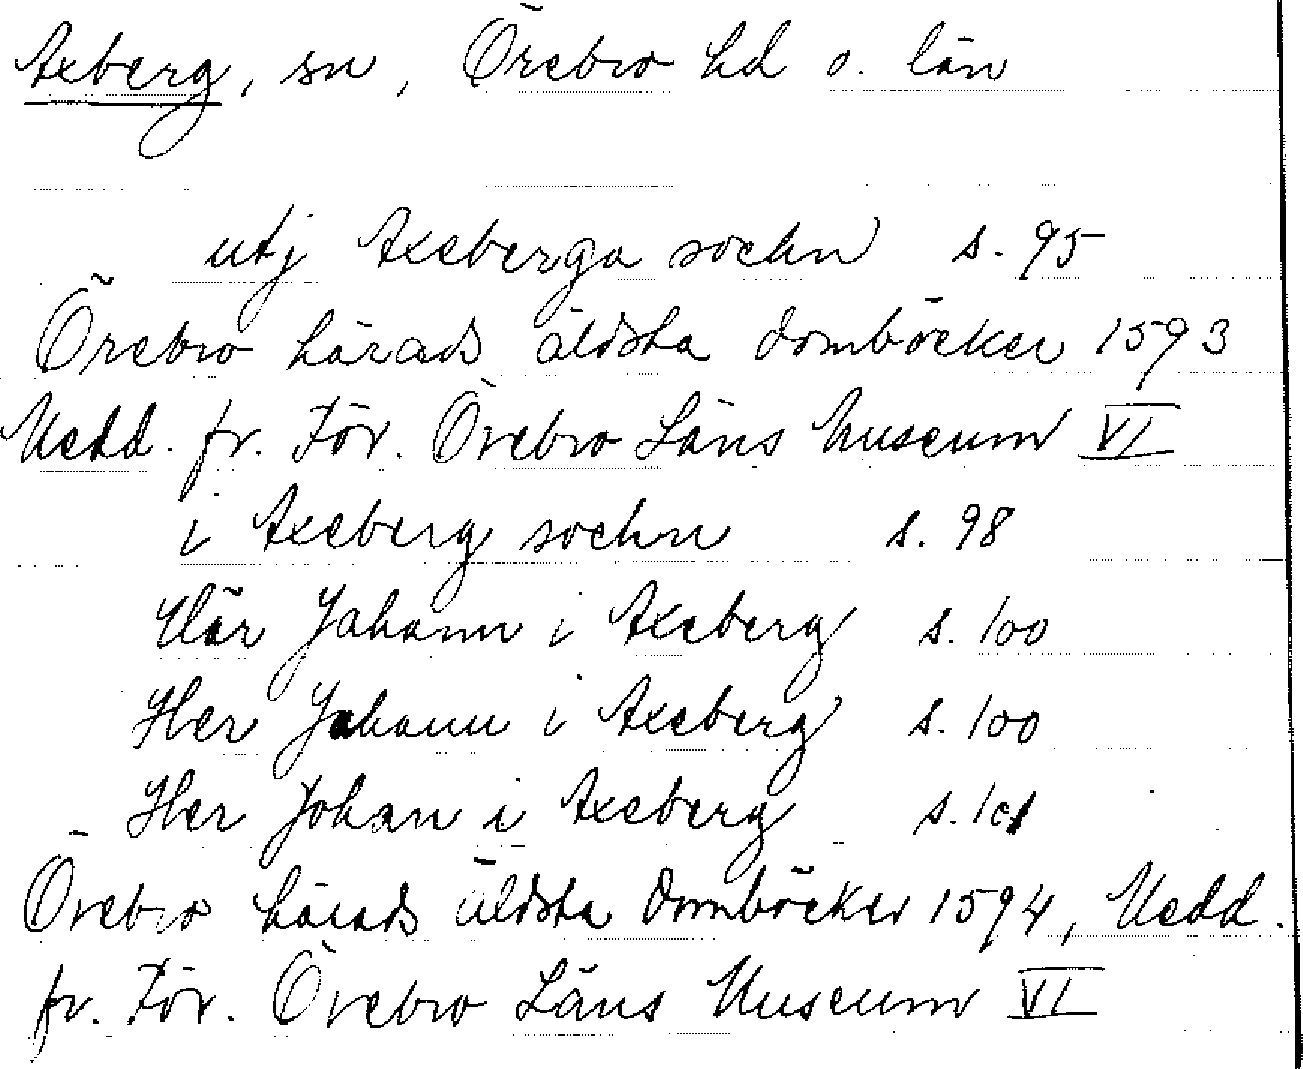 Axberg, sn, Örebro hd o. län
utj Axeberga sochn s. 95
Örebro härads äldsta domböcker 1593
Medd. fr. För. Örebro Läns Museum VI
i Axeberg sochn s. 98
Här Jahann i Axeberg s. 100
Her Jahann i Axeberg s. 100
Her Johan i Axeberg s. 101
Örebro härads äldsta domböcker 1594, Medd.
fr. För. Örebro Läns Museum VI